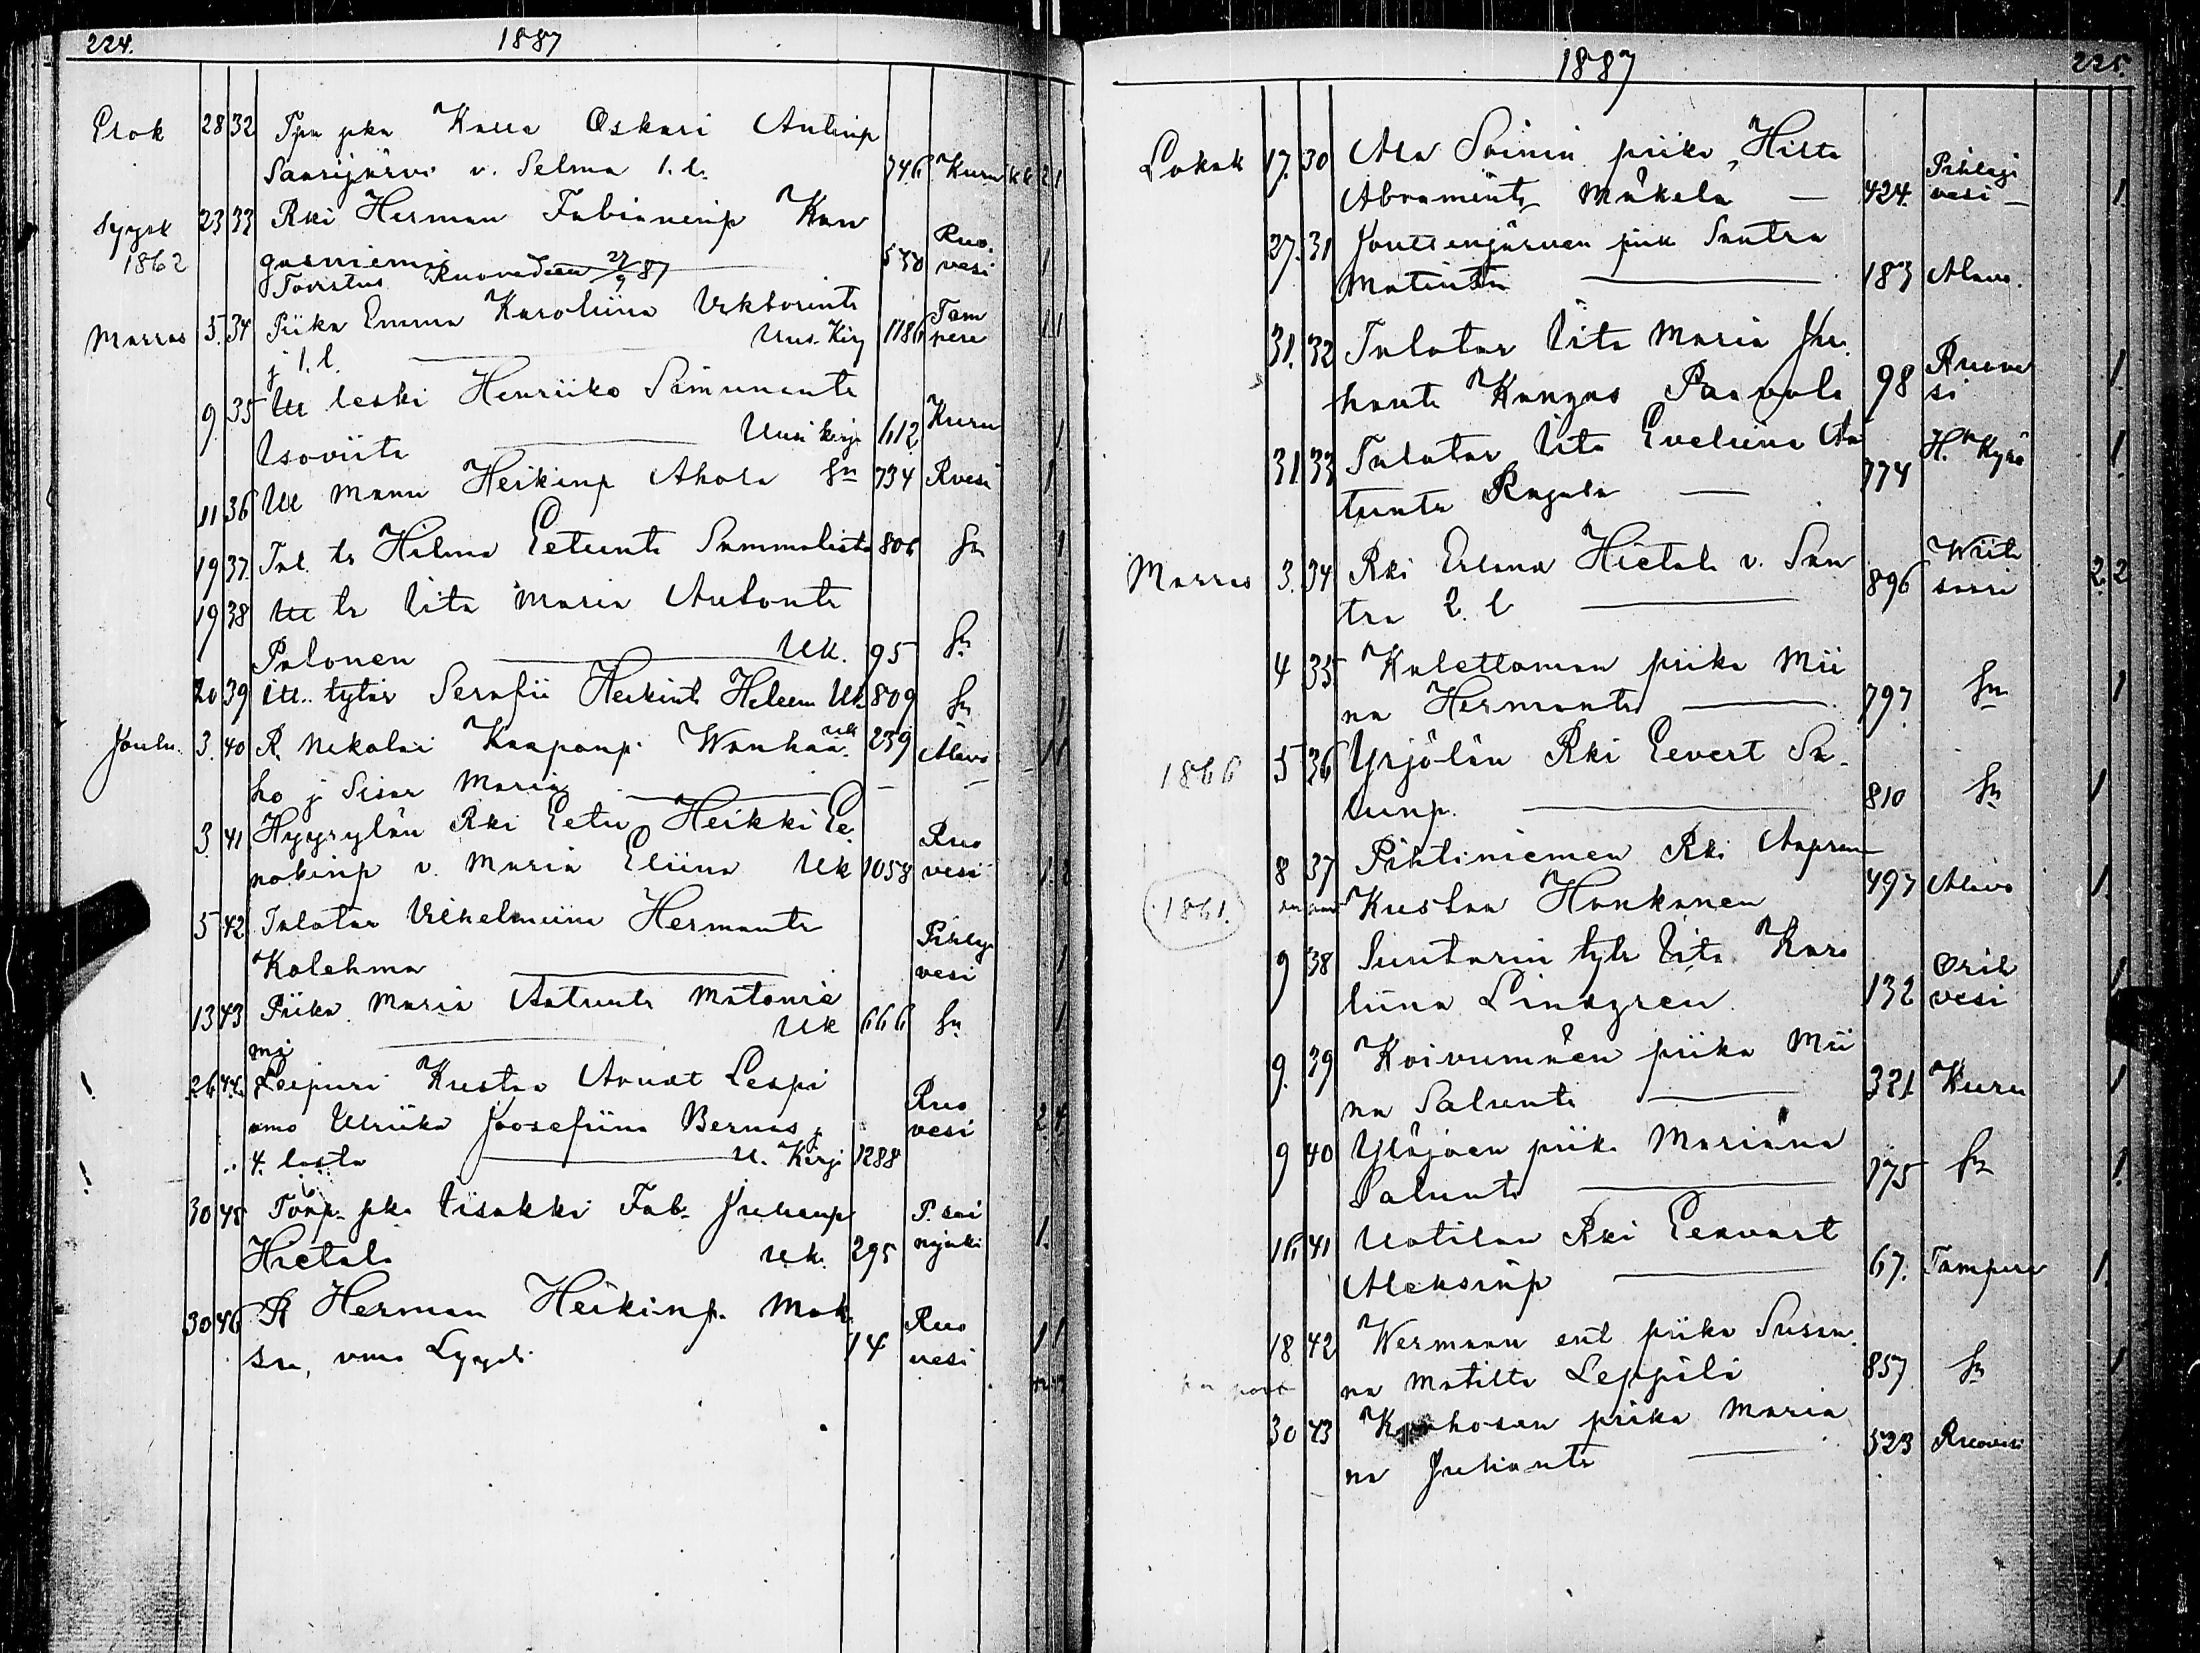 224. 1887
Elok 28 32 Tpa pka Kalle Oskari Antinp
Saarijärvi v. Selma 1. l. 746 Kuru kk 2 1
Syysk 23 33 Rki Herman Fabianinp Kan
1862 gasniemi 530 Ruovesi 1
Todistus Ruovedeen 27/9 87
Marras 5. 34 Piika Emma Karoliina Viktorint
j 1. l. Uus. Kirj 1186 Tampere 1 1
9. 35 Itl leski Henriika Simunant
Isoviita Uusi kirja 612 Kuru 1
11 36 Itl Manu Heikinp Ahola Sn 734 Rvesi 1
19 37. Tal. tr Hilma Eetunt Sammalisto 806 Sn 1
19 38 Itl tr Iita Maria Antont
Palonen Uk. 95 Sn 1
20 39 Itl. tytär Serafii Heikint Heleen Uk 809 Sn 1
Joulu. 3. 40 R. Nikolai Kaaponp. Wanha uk 239 Alavo 1 1
ho j Sisar Maria
3. 41 Hyyrylän Rki Eetu Heikki Ee
nokinp v. Maria Eliina Uk 1058 Ruovesi 1. 2
5 42 Talotar Vilhelmiina Hermant
Kolehma Pihlajavesi 1
13 43 Piika Maria Antunt Matonie
mi Uk 666 Sn 1
26 44. Leipuri Kustaa Arvid Lespi
vmo Ulriika Joosefiina Bernas j Ruovesi 2. 4.
4. lasta U. Kirj 1288
30 45 Torp. pka Iisakki Fab. Juhanp
Hietala Uk. 295 P. seinäjoki 1.
30 46 R Herman Heikinp. Mak
sa, vmo Lyydi 14 Ruovesi 1 1
1887 225.
Lokak 17. 30 Ala Soinin piika Hilta
Abramint Mäkelä 424. Pihlajavesi 1.
27. 31 Jouttenjärven piik Santra
Matintr 183 Alavo.
31. 32 Talotar Iita Maria Ju
hant Kangas Paavola 98 Ruovesi 1.
31 33 Talotar Iita Eveliina An
tunt Rajala 774 H. Kyrö 1.
Marras 3. 34 Rki Erland Hietala v. San
tra 2. l 896 Wiitasaari 2. 2
4 35 Kalettoman piika Mii
na Hermant 797 Sn 1
1866 5 36 Yrjölän Rki Eevert Sa-
lunp. 810 Sn 1
8 37 Pihtiniemen Rki Aapram
1861. Kustaa Honkanen 497 Alavo 1.
9 38 Suntarin tytr Iita Karo
liina Lindgren 132 Orihvesi 1
9. 39 Koivumäen piika Mii
na Salunt 321 Kuru 1
9 40 Yläjoen piika Mariana
Salunt 775 Sn 1.
16 41 Uotilan Rki Eeavart
Aleksinp 67. Tampere 1.
18 42 Wermaan ent piika Susan
na Matilta Leppäli 857 Sn 1
30 43 Korhosen piika Maria
na Juhant 523 Ruovesi